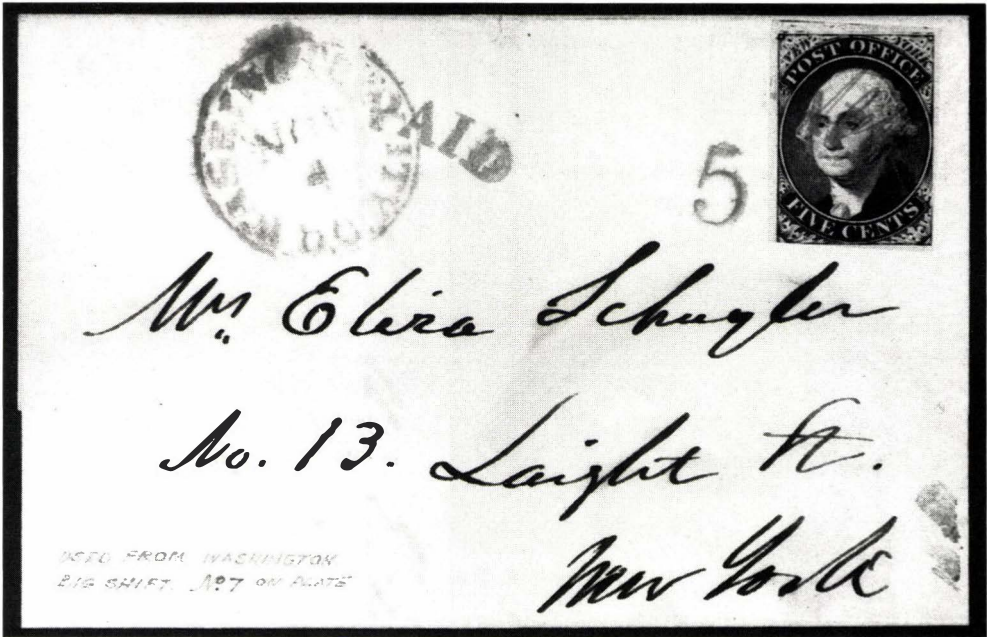 WASHINGTON CITY
D.C.
NOV
4
PAID
5
POST OFFICE
FIVE CENTS
Mrs Eliza Schuyler
No. 13. Laight St.
New York
USED FROM WASHINGTON
BIG SHIFT. No 7 ON PLATE